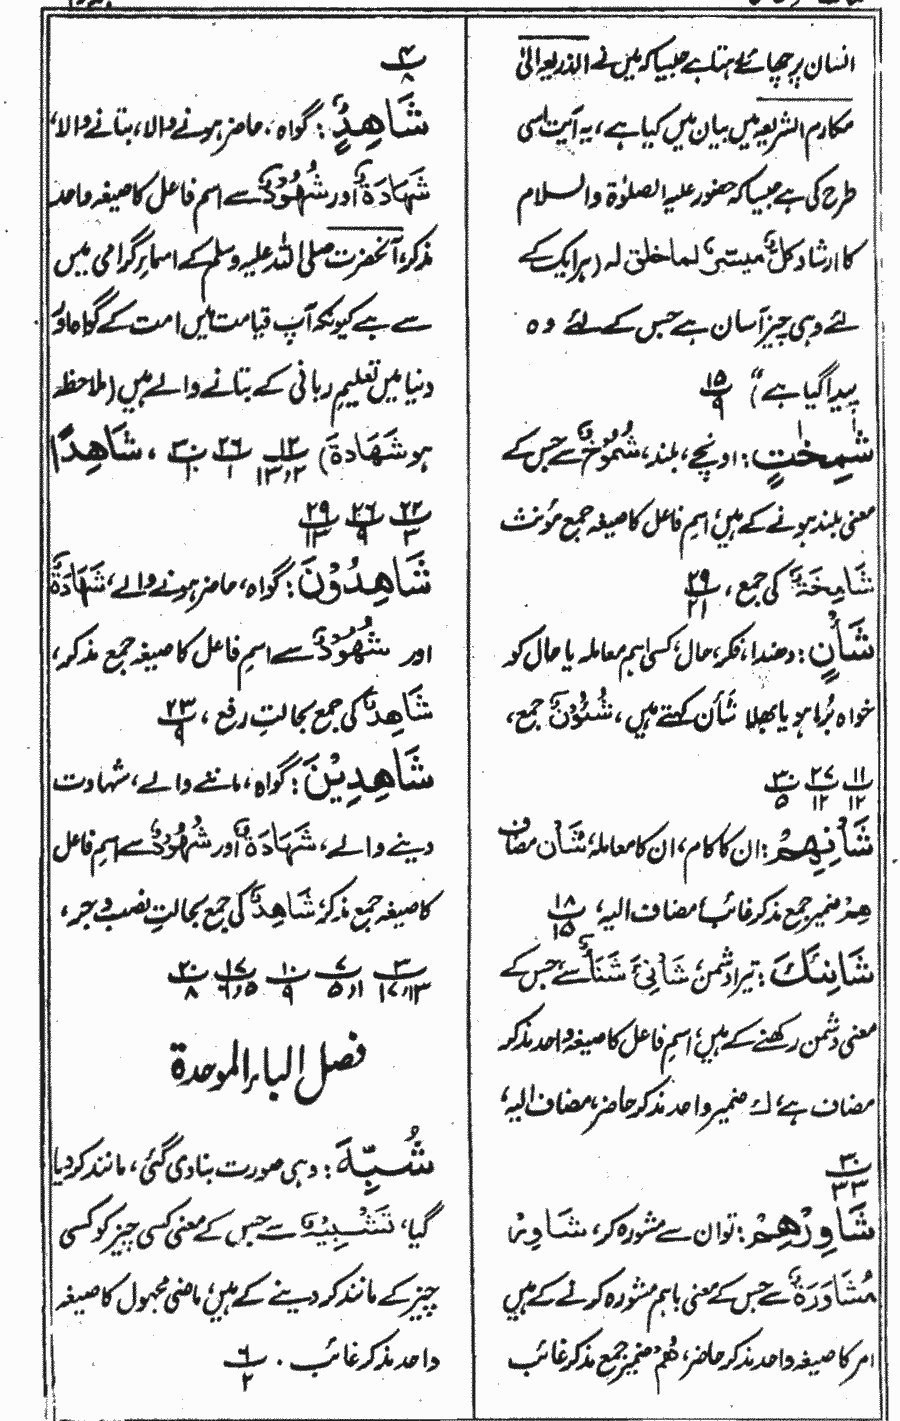 انسان پر چھائے رہتا ہے جیسا کہ میں نے الذریعہ الیٰ
مکارم الشریعہ میں بیان میں کیا ہے، یہ آیت اسی
طرح کی ہے جیسا کہ حضور علیہ الصلوٰۃ والسلام
کا ارشاد کُلٌّ مُیَسَّرٌ لما خلق لہ (ہر ایک کے
لئے وہی چیز آسان ہے جس کے لئے وہ
پیدا گیا ہے) ۱۵/۹
شٰمِخٰتٍ: اونچے، بلند، شُمُوْخٌ سے جس کے
معنی بلند ہونے کے ہیں، اسم فاعل کا صیغہ جمع مؤنث
شَامِخَۃٌ کی جمع، ۲۹/۲۱
شَأْنٍ: دھندا، فکر، حال، کسی اہم معاملہ یا حال کو
خواہ بُرا ہو یا بھلا شَأن کہتے ہیں، شُئُوْنٌ جمع،
۱۱/۱۲ ۲۷/۱۲ ۳۰/۵
شَاْنِهِمْ: ان کا کام، ان کا معاملہ، شَاْن مضاف
هِمْ ضمیر جمع مذکر غائب، مضاف الیہ، ۱۸/۱۵
شَانِئَكَ: تیرا دشمن، شَانِیْءٌ شَنَأٌ سے، جس کے
معنی دشمن رکھنے کے ہیں، اسم فاعل کا صیغہ واحد مذکر
مضاف ہے، كَ ضمیر واحد مذکر حاضر، مضاف الیہ،
۳۰/۳۳
شَاوِرْهُمْ: تو ان سے مشورہ کر، شَاوِرْ
مُشَاوَرَۃٌ سے جس کے معنی باہم مشورہ کرنے کے ہیں
امر کا صیغہ واحد مذکر حاضر، هُمْ ضمیر جمع مذکر غائب
۴/۸
شَاهِدٌ: گواہ، حاضر ہونے والا، بتانے والا،
شَهَادَۃٌ اور شُهُوْدٌ سے اسم فاعل کا صیغہ واحد
مذکر، آنحضرت صلی اللہ علیہ وسلم کے اسماء گرامی میں
سے ہے کیونکہ آپ قیامت میں امت کے گواہ اور
دنیا میں تعلیم ربانی کے بتانے والے ہیں (ملاحظہ
ہو شَهَادَۃ) ۱۲/۱۳،۲ ۲۶/۱ ۳۰/۱۰، شَاهِدًا
۲۲/۳ ۲۶/۹ ۲۹/۱۳
شَاهِدُوْنَ: گواہ، حاضر ہونے والے، شَهَادَۃٌ
اور شُهُوْدٌ سے اسم فاعل کا صیغہ جمع مذکر،
شَاهِدٌ کی جمع بحالت رفع، ۲۳/۹
شَاهِدِیْنَ: گواہ، ماننے والے، شہادت
دینے والے، شَهَادَۃٌ اور شُهُوْدٌ سے اسم فاعل
کا صیغہ جمع مذکر، شَاهِدٌ کی جمع بحالت نصب و جر،
۳/۱۳،۱۷ ۷/۱،۵ ۱۰/۹ ۱۷/۵،۶ ۲۰/۸
فصل الباء الموحدۃ
شُبِّهَ: وہی صورت بنا دی گئی، مانند کر دیا
گیا، تَشْبِیْهٌ سے جس کے معنی کسی چیز کو کسی
چیز کے مانند کر دینے کے ہیں، ماضی مجہول کا صیغہ
واحد مذکر غائب. ۶/۲